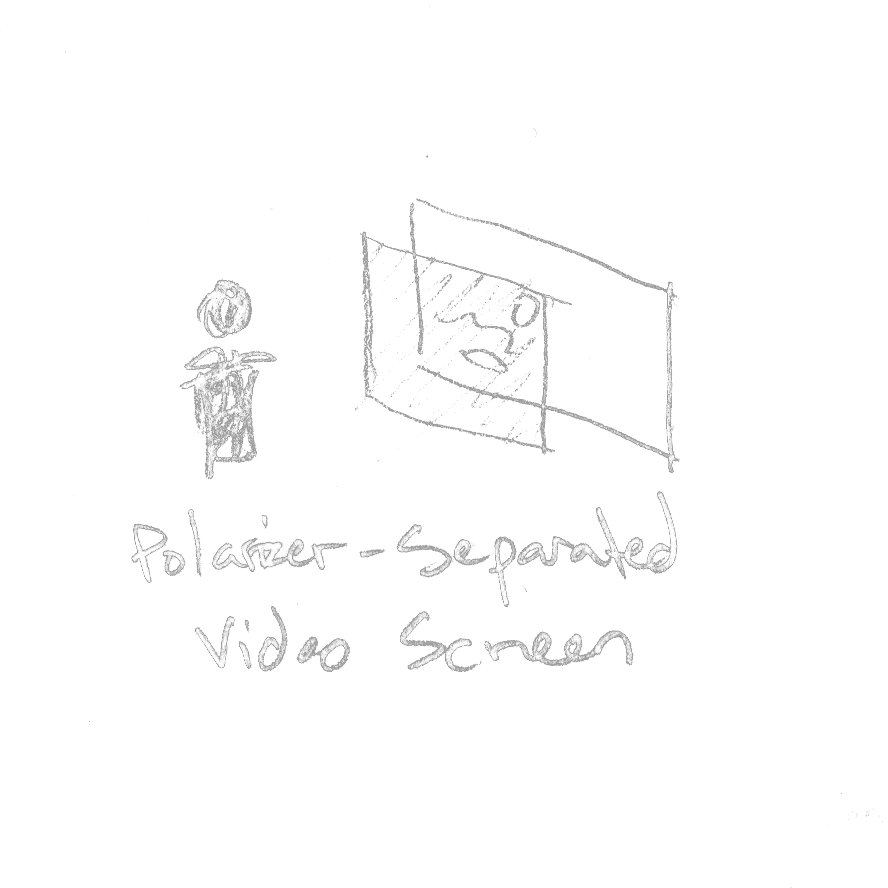 Polarizer-Separated
Video Screen